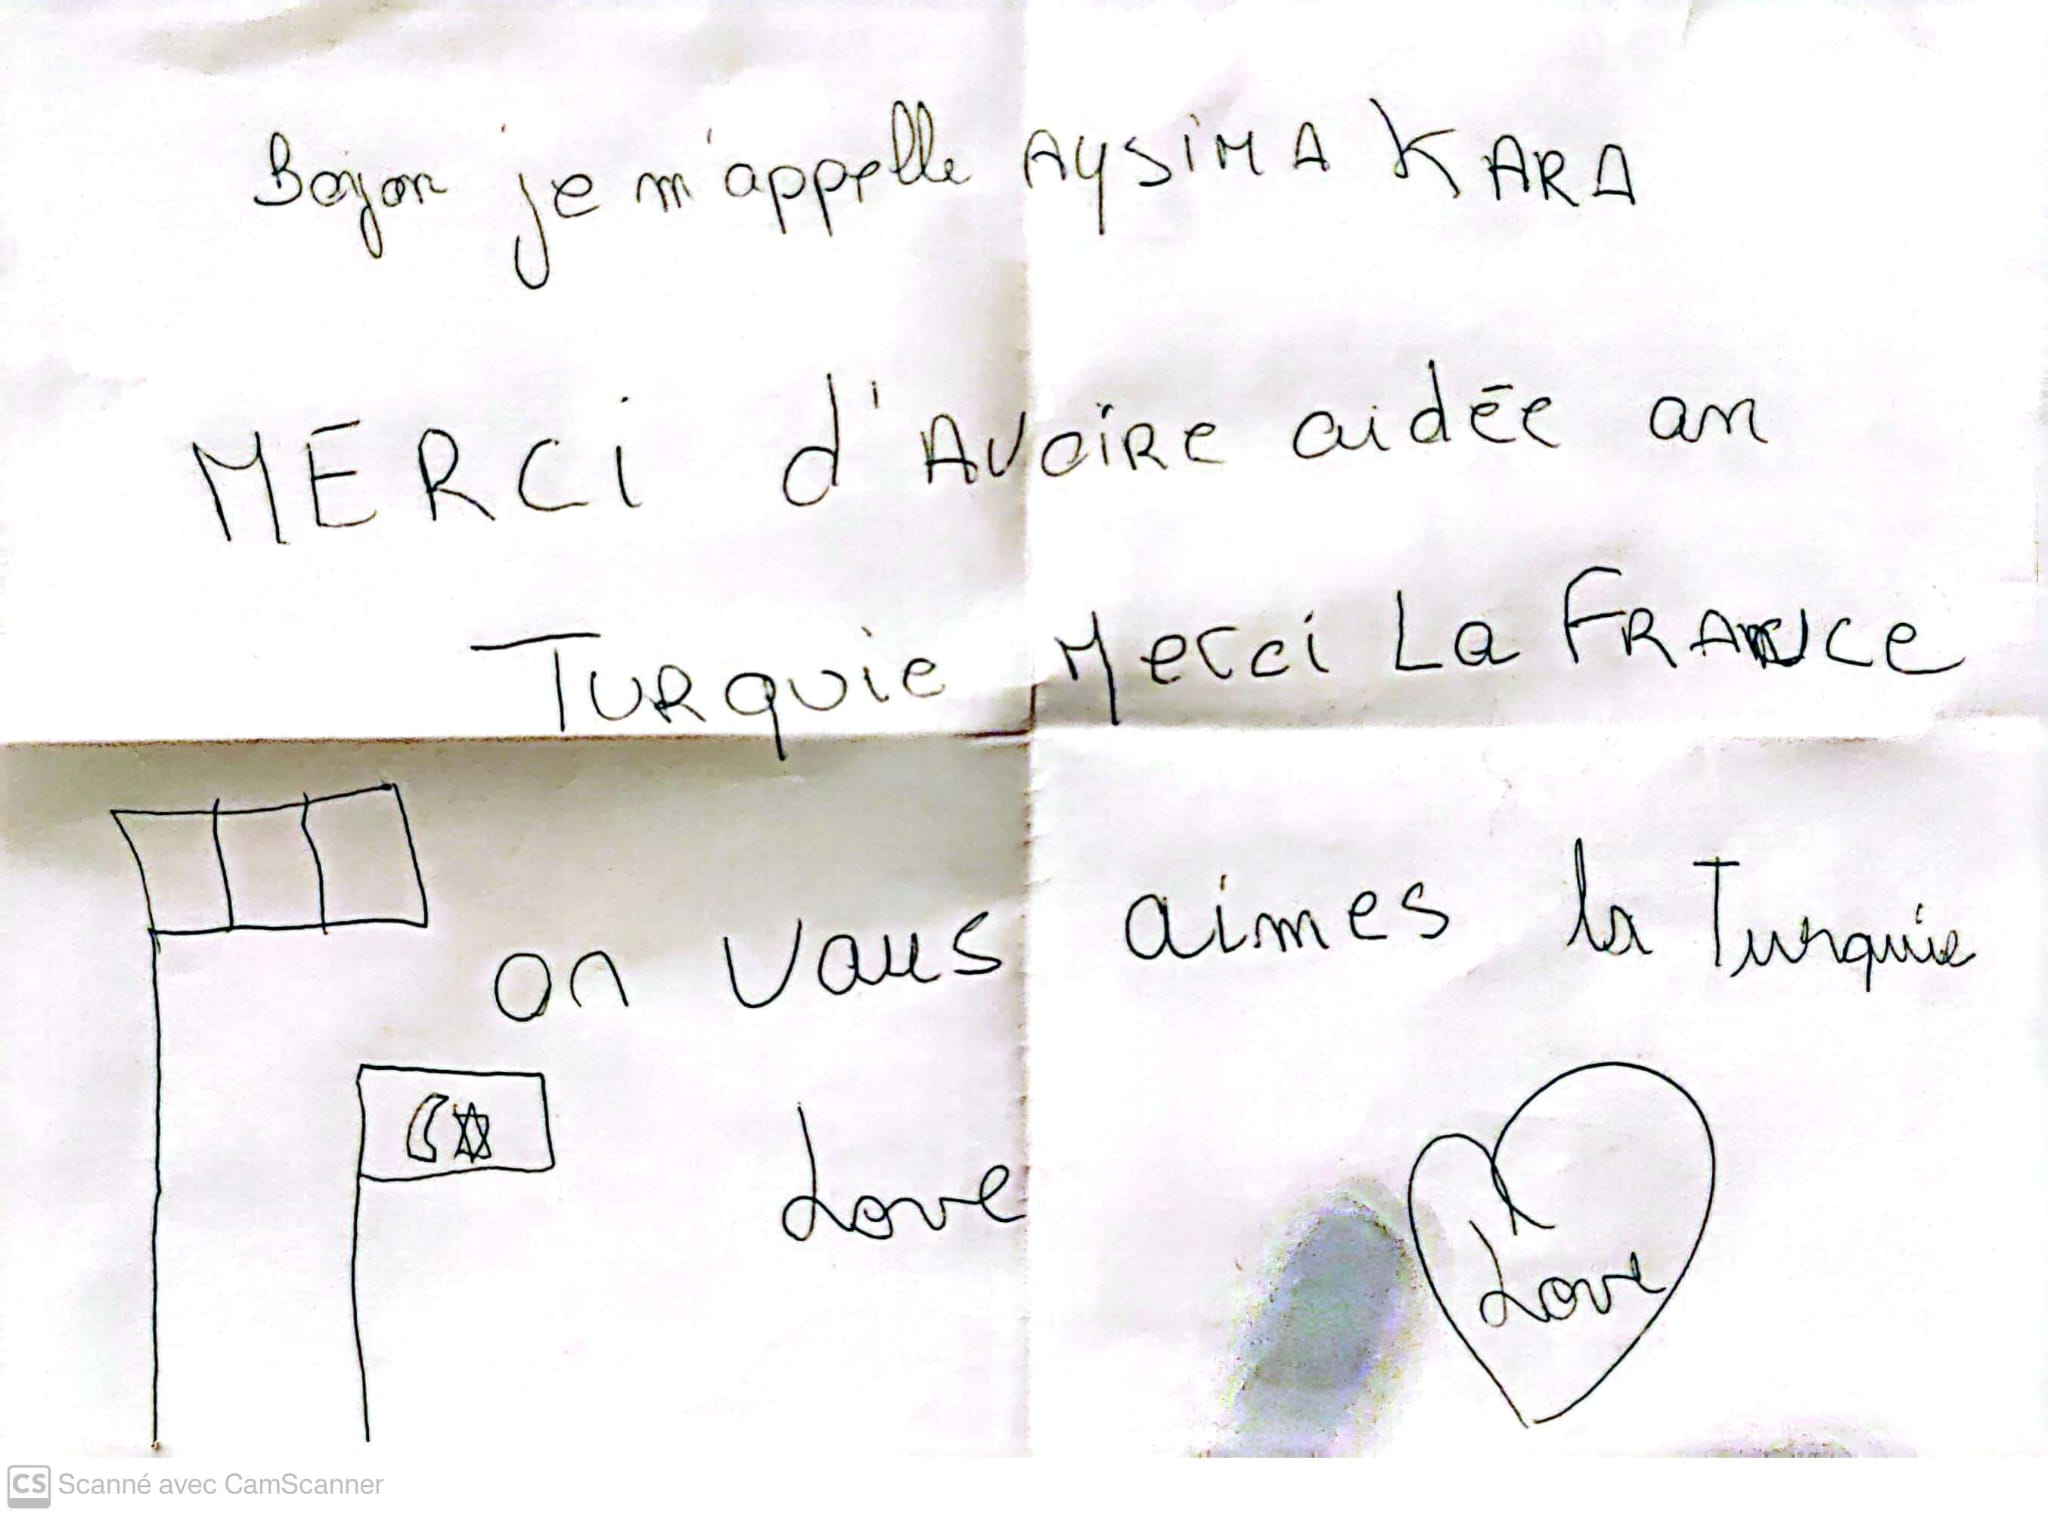 Bojon je m'appelle AYSiMA KARA
MERCi d'AVOiRe aidée an
TURquie Merci La FRANCe
on vous aimes la Turquie
Love
Love
CS Scanné avec CamScanner